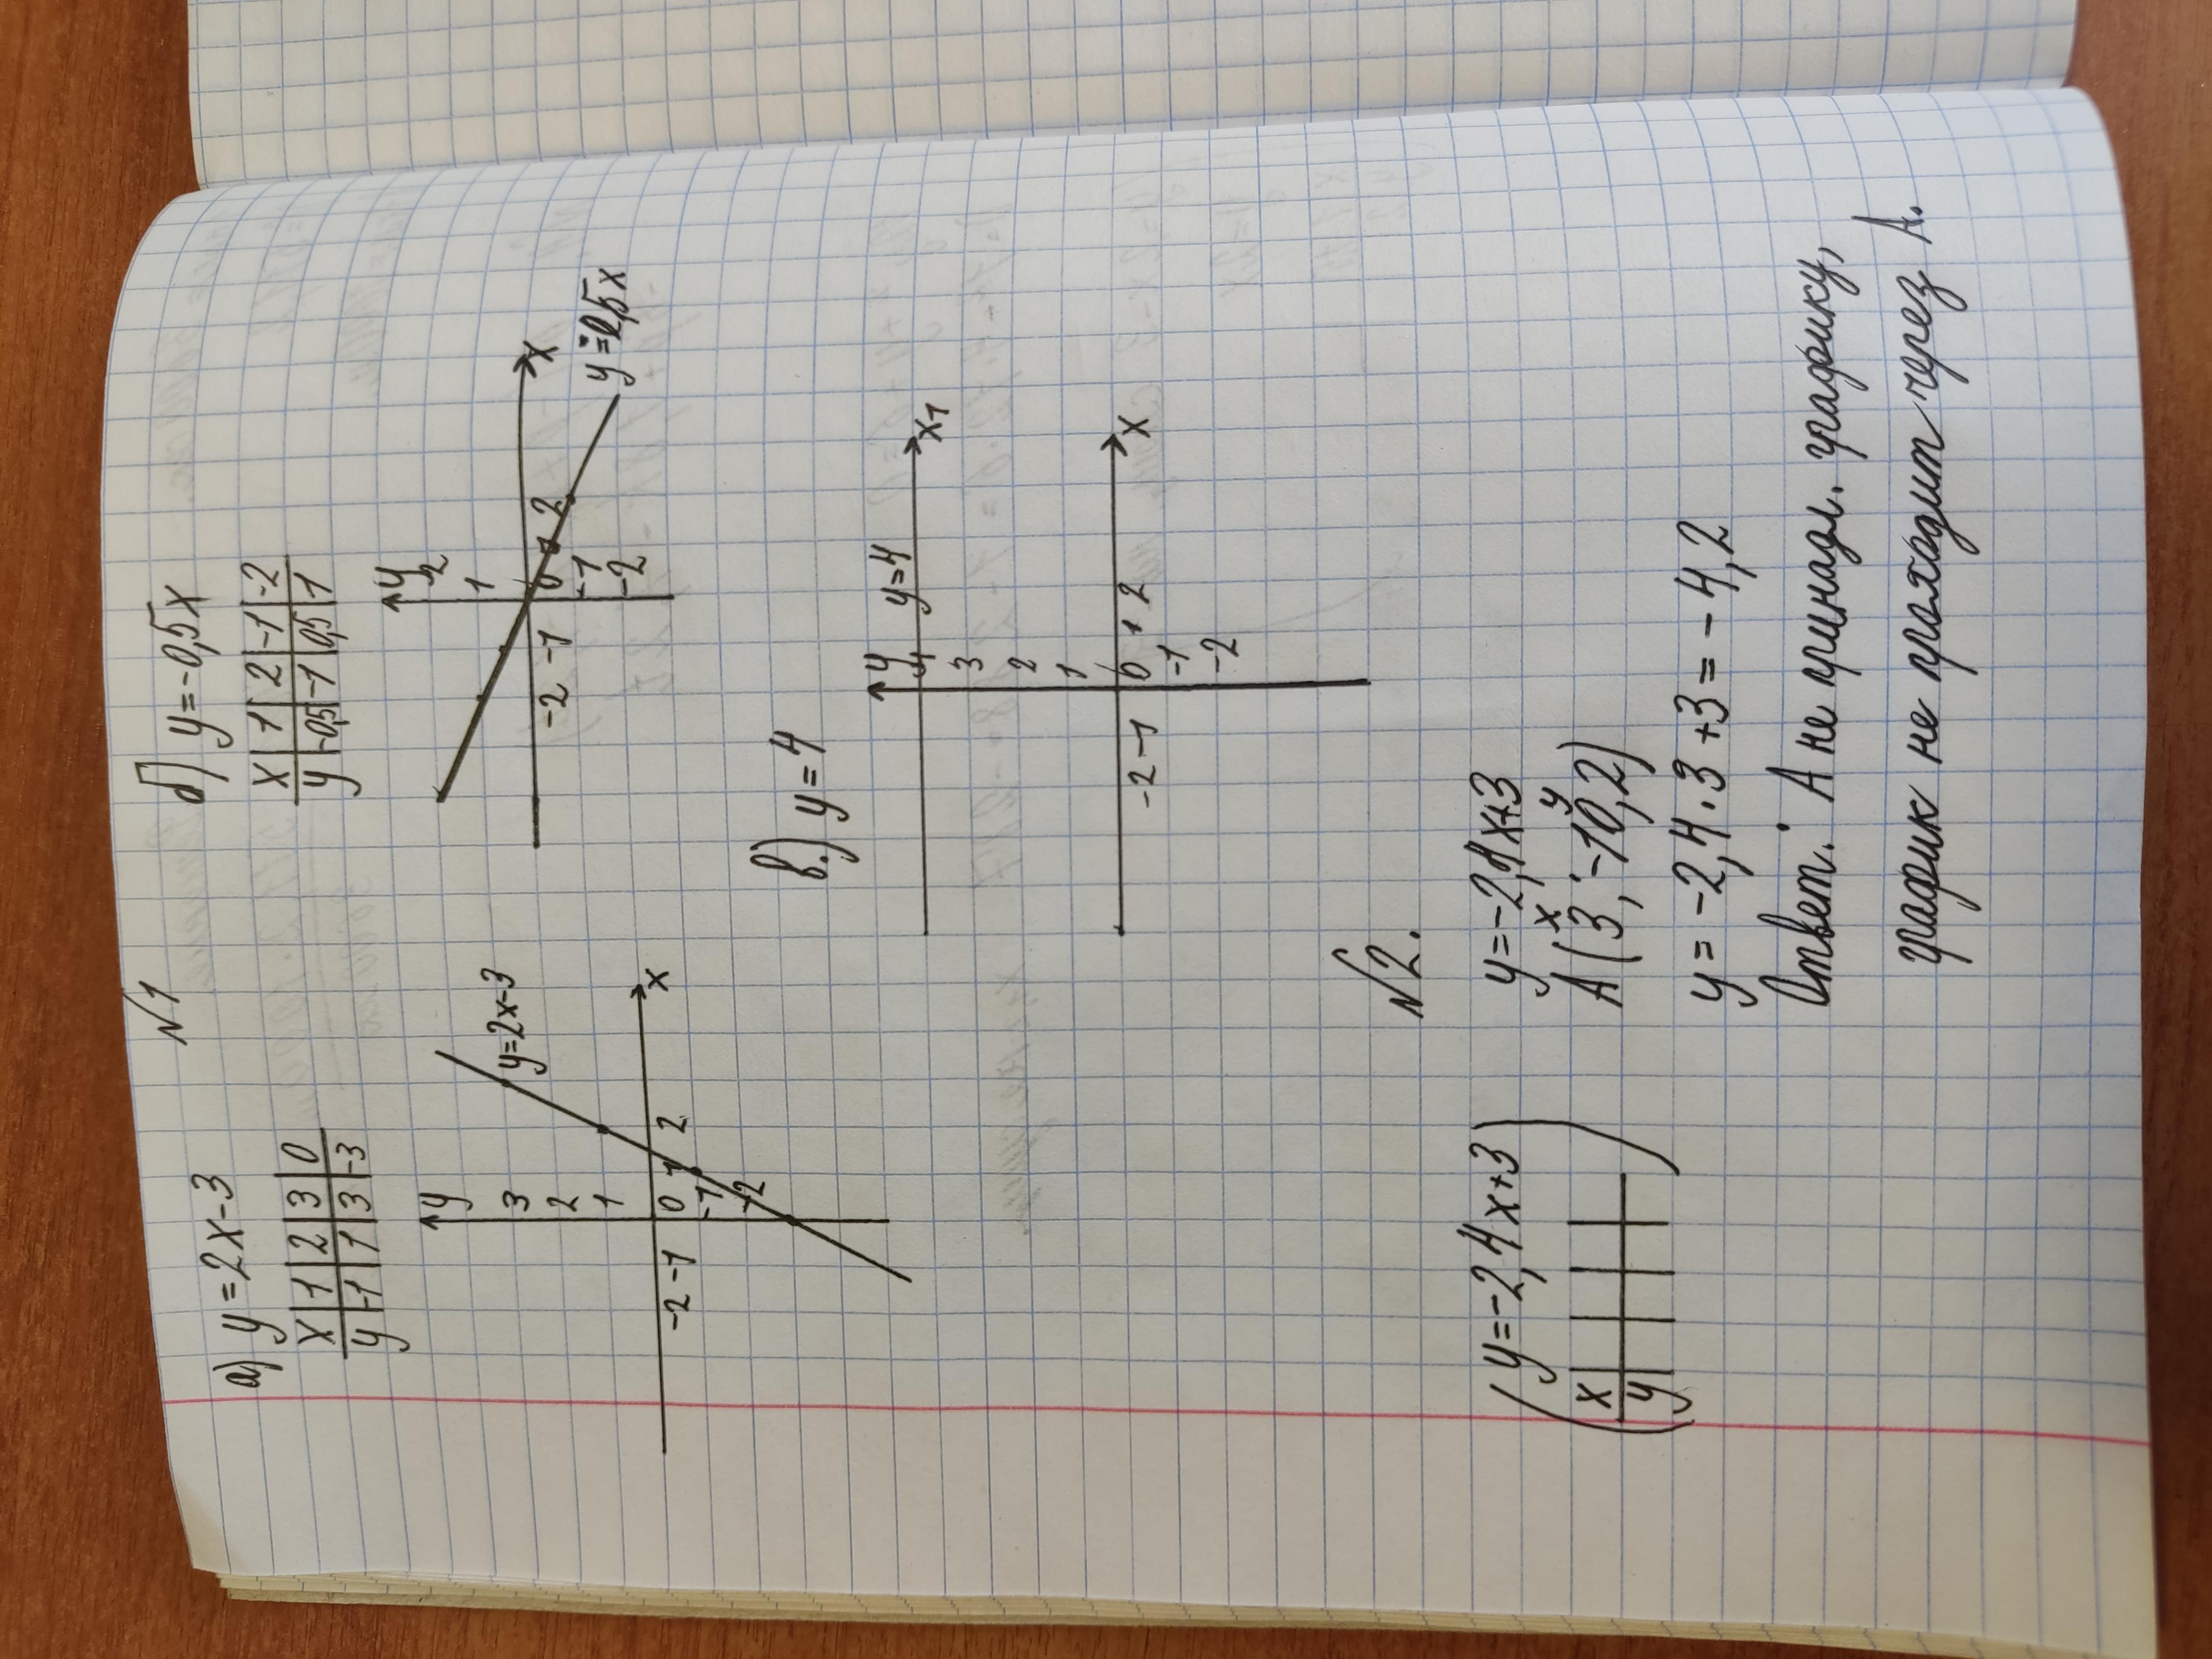 №1
а) y = 2x-3
x | 1 | 2 | 3 | 0
y | -1 | 1 | 3 | -3
y
3
2
1
y=2x-3
x
-2 -1 0 1 2
-1
-2
б) y = -0,5x
x | 1 | 2 | -1 | -2
y | -0,5 | -1 | 0,5 | 1
y
2
1
x
-2 -1 0 1 2
-1
-2
y=-0,5x
в.) y = 4
y
4 y=4
x1
3
2
1
x
-2 -1 0 1 2
-1
-2
№2.
(y = -2,4x+3)
x
y
y = -2,4x+3
x y
A(3; -10,2)
y = -2,4·3+3 = -4,2
Ответ: А не принадл. графику,
график не проходит через А.